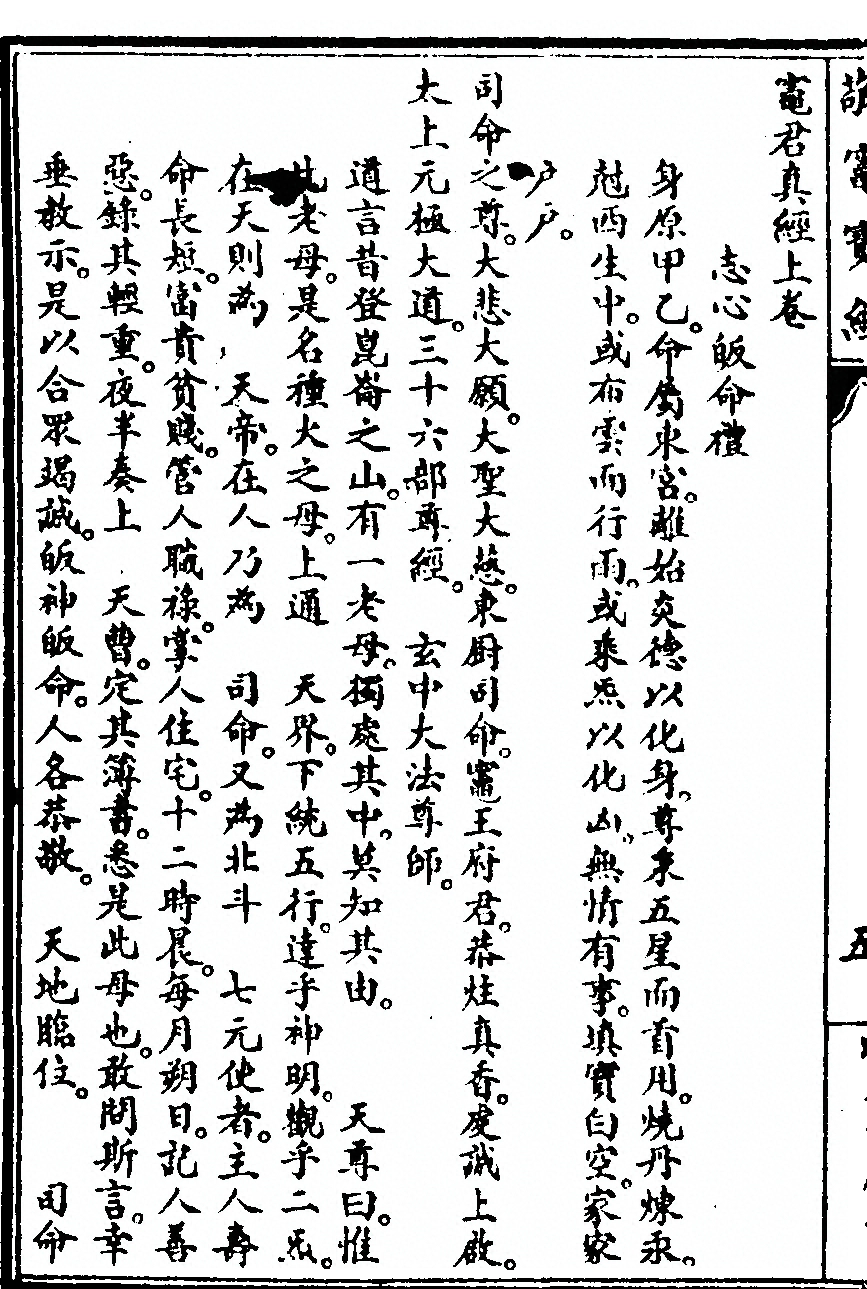 敬竈寶經
五
竈君真經上卷
志心皈命禮
身原甲乙。命屬東宮。離始炎德以化身。尊乗五星而首用。燒丹煉汞。
尅西生中。或布雲而行雨。或乗炁以化凶。無情有事。填實白空。家家
戶戶。
司命之尊。大悲大願。大聖大慈。東厨司命。竈王府君。恭炷真香。虔誠上啟。
太上元極大道。三十六部尊經。　玄中大法尊師。
道言昔登崑崙之山。有一老母。獨處其中。莫知其由。　天尊曰。惟
此老母。是名種火之母。上通　天界。下統五行。達乎神明。觀乎二炁。
在天則為　天帝。在人乃為　司命。又為北斗　七元使者。主人壽
命長短。富貴貧賤。管人職祿。掌人住宅。十二時辰。每月朔日。記人善
惡。錄其輕重。夜半奏上　天曹。定其簿書。悉是此母也。敢問斯言。幸
垂教示。是以合眾竭誠。皈神皈命。人各恭敬。　天地臨住。　司命